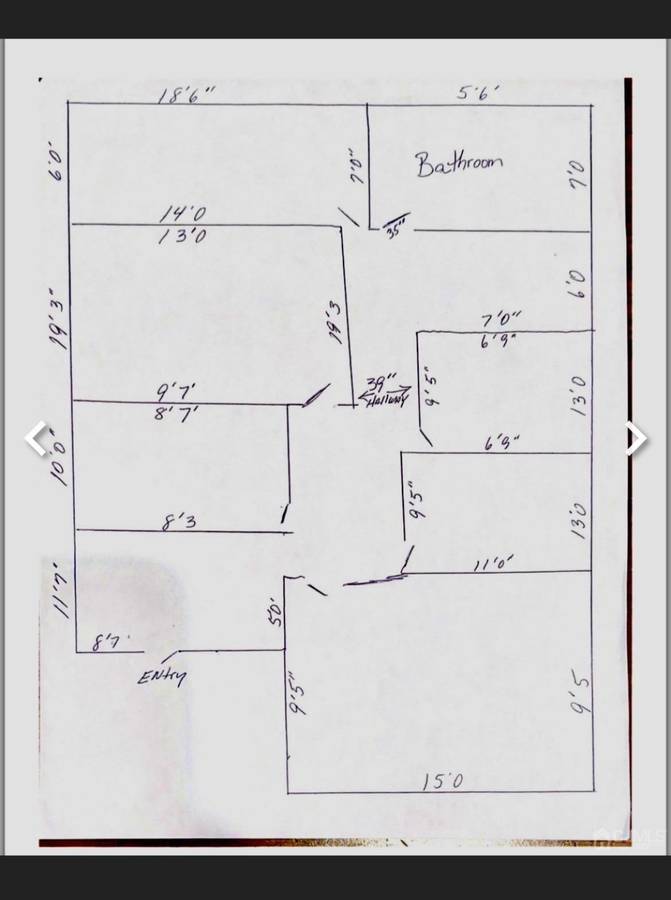 18'6"
5'6'
6'0'
7'0"
Bathroom
7'0
14'0
13'0
35"
6'0
19'3"
19'3
7'0"
6'9"
9'7'
8'7'
39"
HALLWAY
9'5"
13'0
10'0"
6'9"
8'3
9'5"
13'0
11'7"
11'0'
50'
8'7'
ENtry
9'5"
9'5
15'0